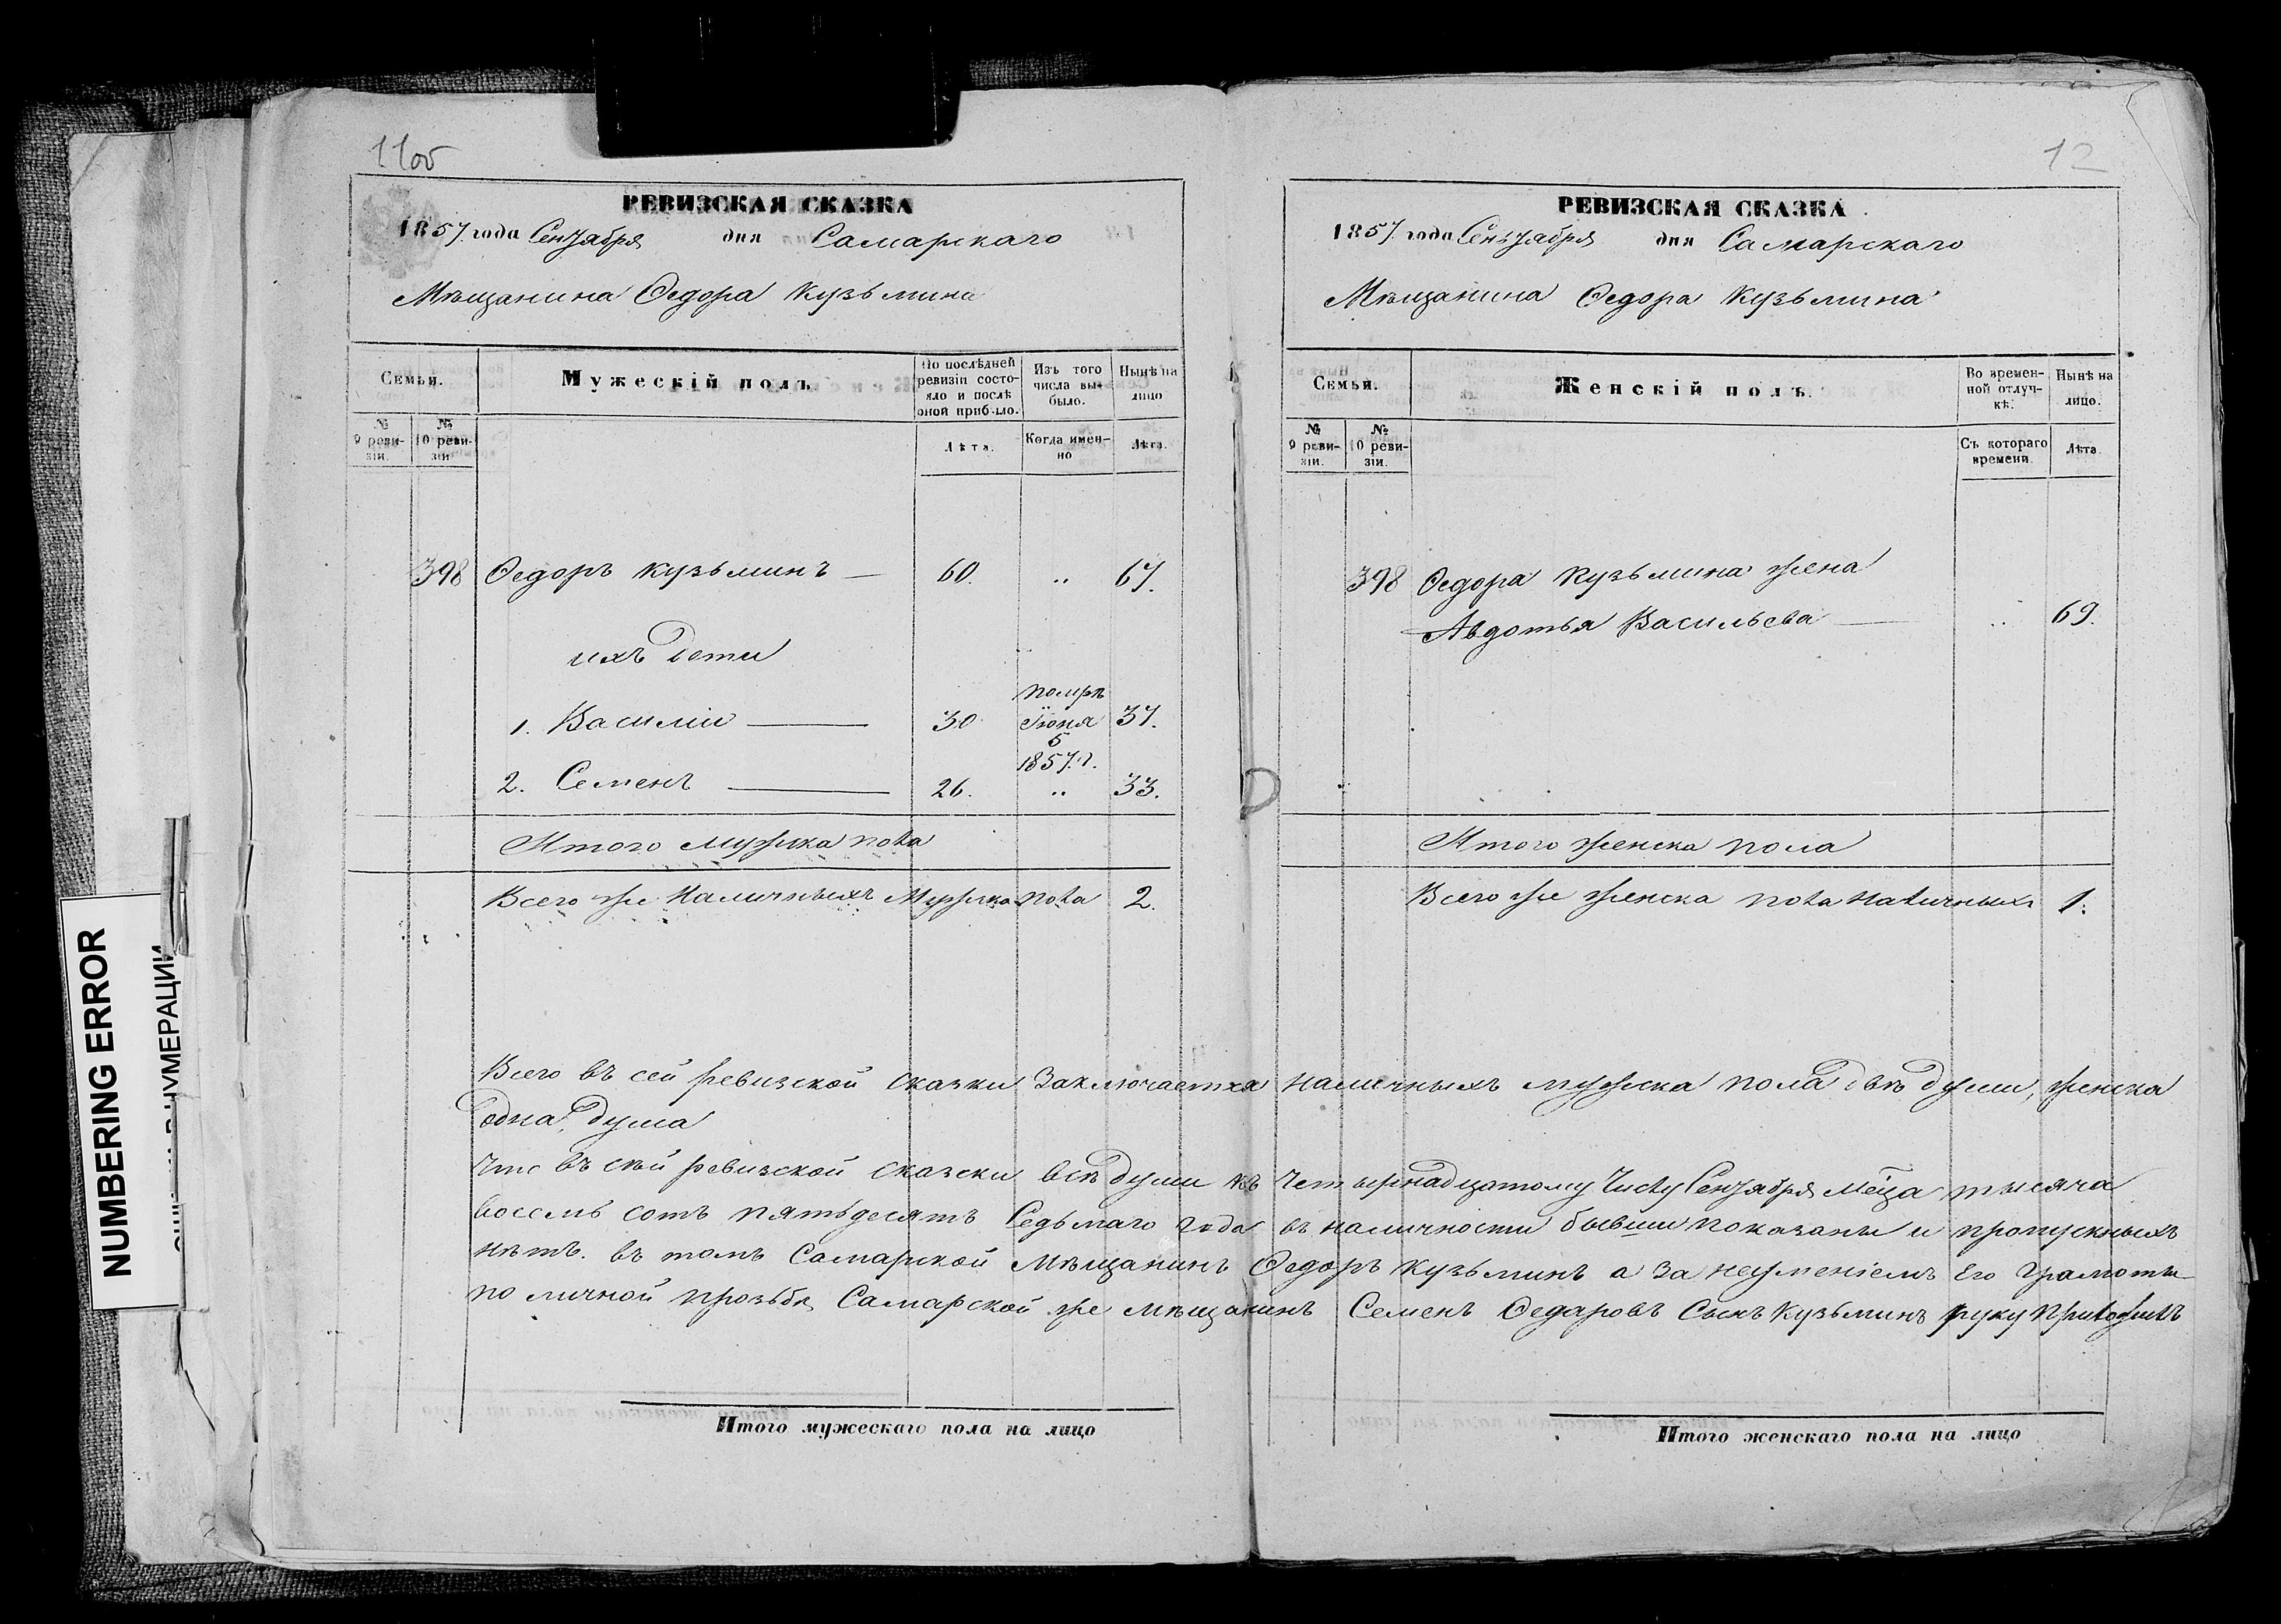 11об
РЕВИЗСКАЯ СКАЗКА
1857 года Сентября дня Самарскаго
Мѣщанина Ѳедора Кузьмина
Семьи.
Мужескій полъ
По послѣдней ревизіи состояло и послѣ оной прибыло.
Изъ того числа выбыло.
Нынѣ на лицо
№ 9 ревизіи.
№ 10 ревизіи
Лѣта.
Когда именно
Лѣта.
398 Ѳедоръ Кузьминъ — 60. .. 67.
ихъ дети
1. Василии — 30 помре Іюня 5 1857. г. 37.
2. Семенъ — 26. .. 33.
Итого мужска пола
Всего же Наличныхъ Мужска пола 2.
12
РЕВИЗСКАЯ СКАЗКА
1857 года Сентября дня Самарскаго
Мѣщанина Ѳедора Кузьмина
Семьи.
Женскій полъ.
Во временной отлучкѣ.
Нынѣ на лицо.
№ 9 ревизіи.
№ 10 ревизіи.
Съ котораго времени.
Лѣта.
398 Ѳедора Кузьмина жена
Авдотья Васильева — .. 69.
Итого женска пола
Всего же женска пола наличныхъ 1.
Всего въ сей ревизской сказки заключается наличныхъ мужска пола двѣ души, женска
одна, душа
Что въ сей ревизской сказски всѣ души къ Четырнадцатому Числу Сентября Мѣца тысяча
восемь сотъ пятьдесятъ Седьмаго года въ наличности бывши показаны и пропускныхъ
нѣтъ. въ томъ Самарской Мѣщанинъ Ѳедоръ Кузьминъ а за неуменіемъ Его Грамоты
по личной прозьбѣ Самарской же мѣщанинъ Семенъ Ѳедаровъ Сынъ Кузьминъ руку приложилъ
Итого мужескаго пола на лицо
Итого женскаго пола на лицо
NUMBERING ERROR
НУМЕРАЦИИ